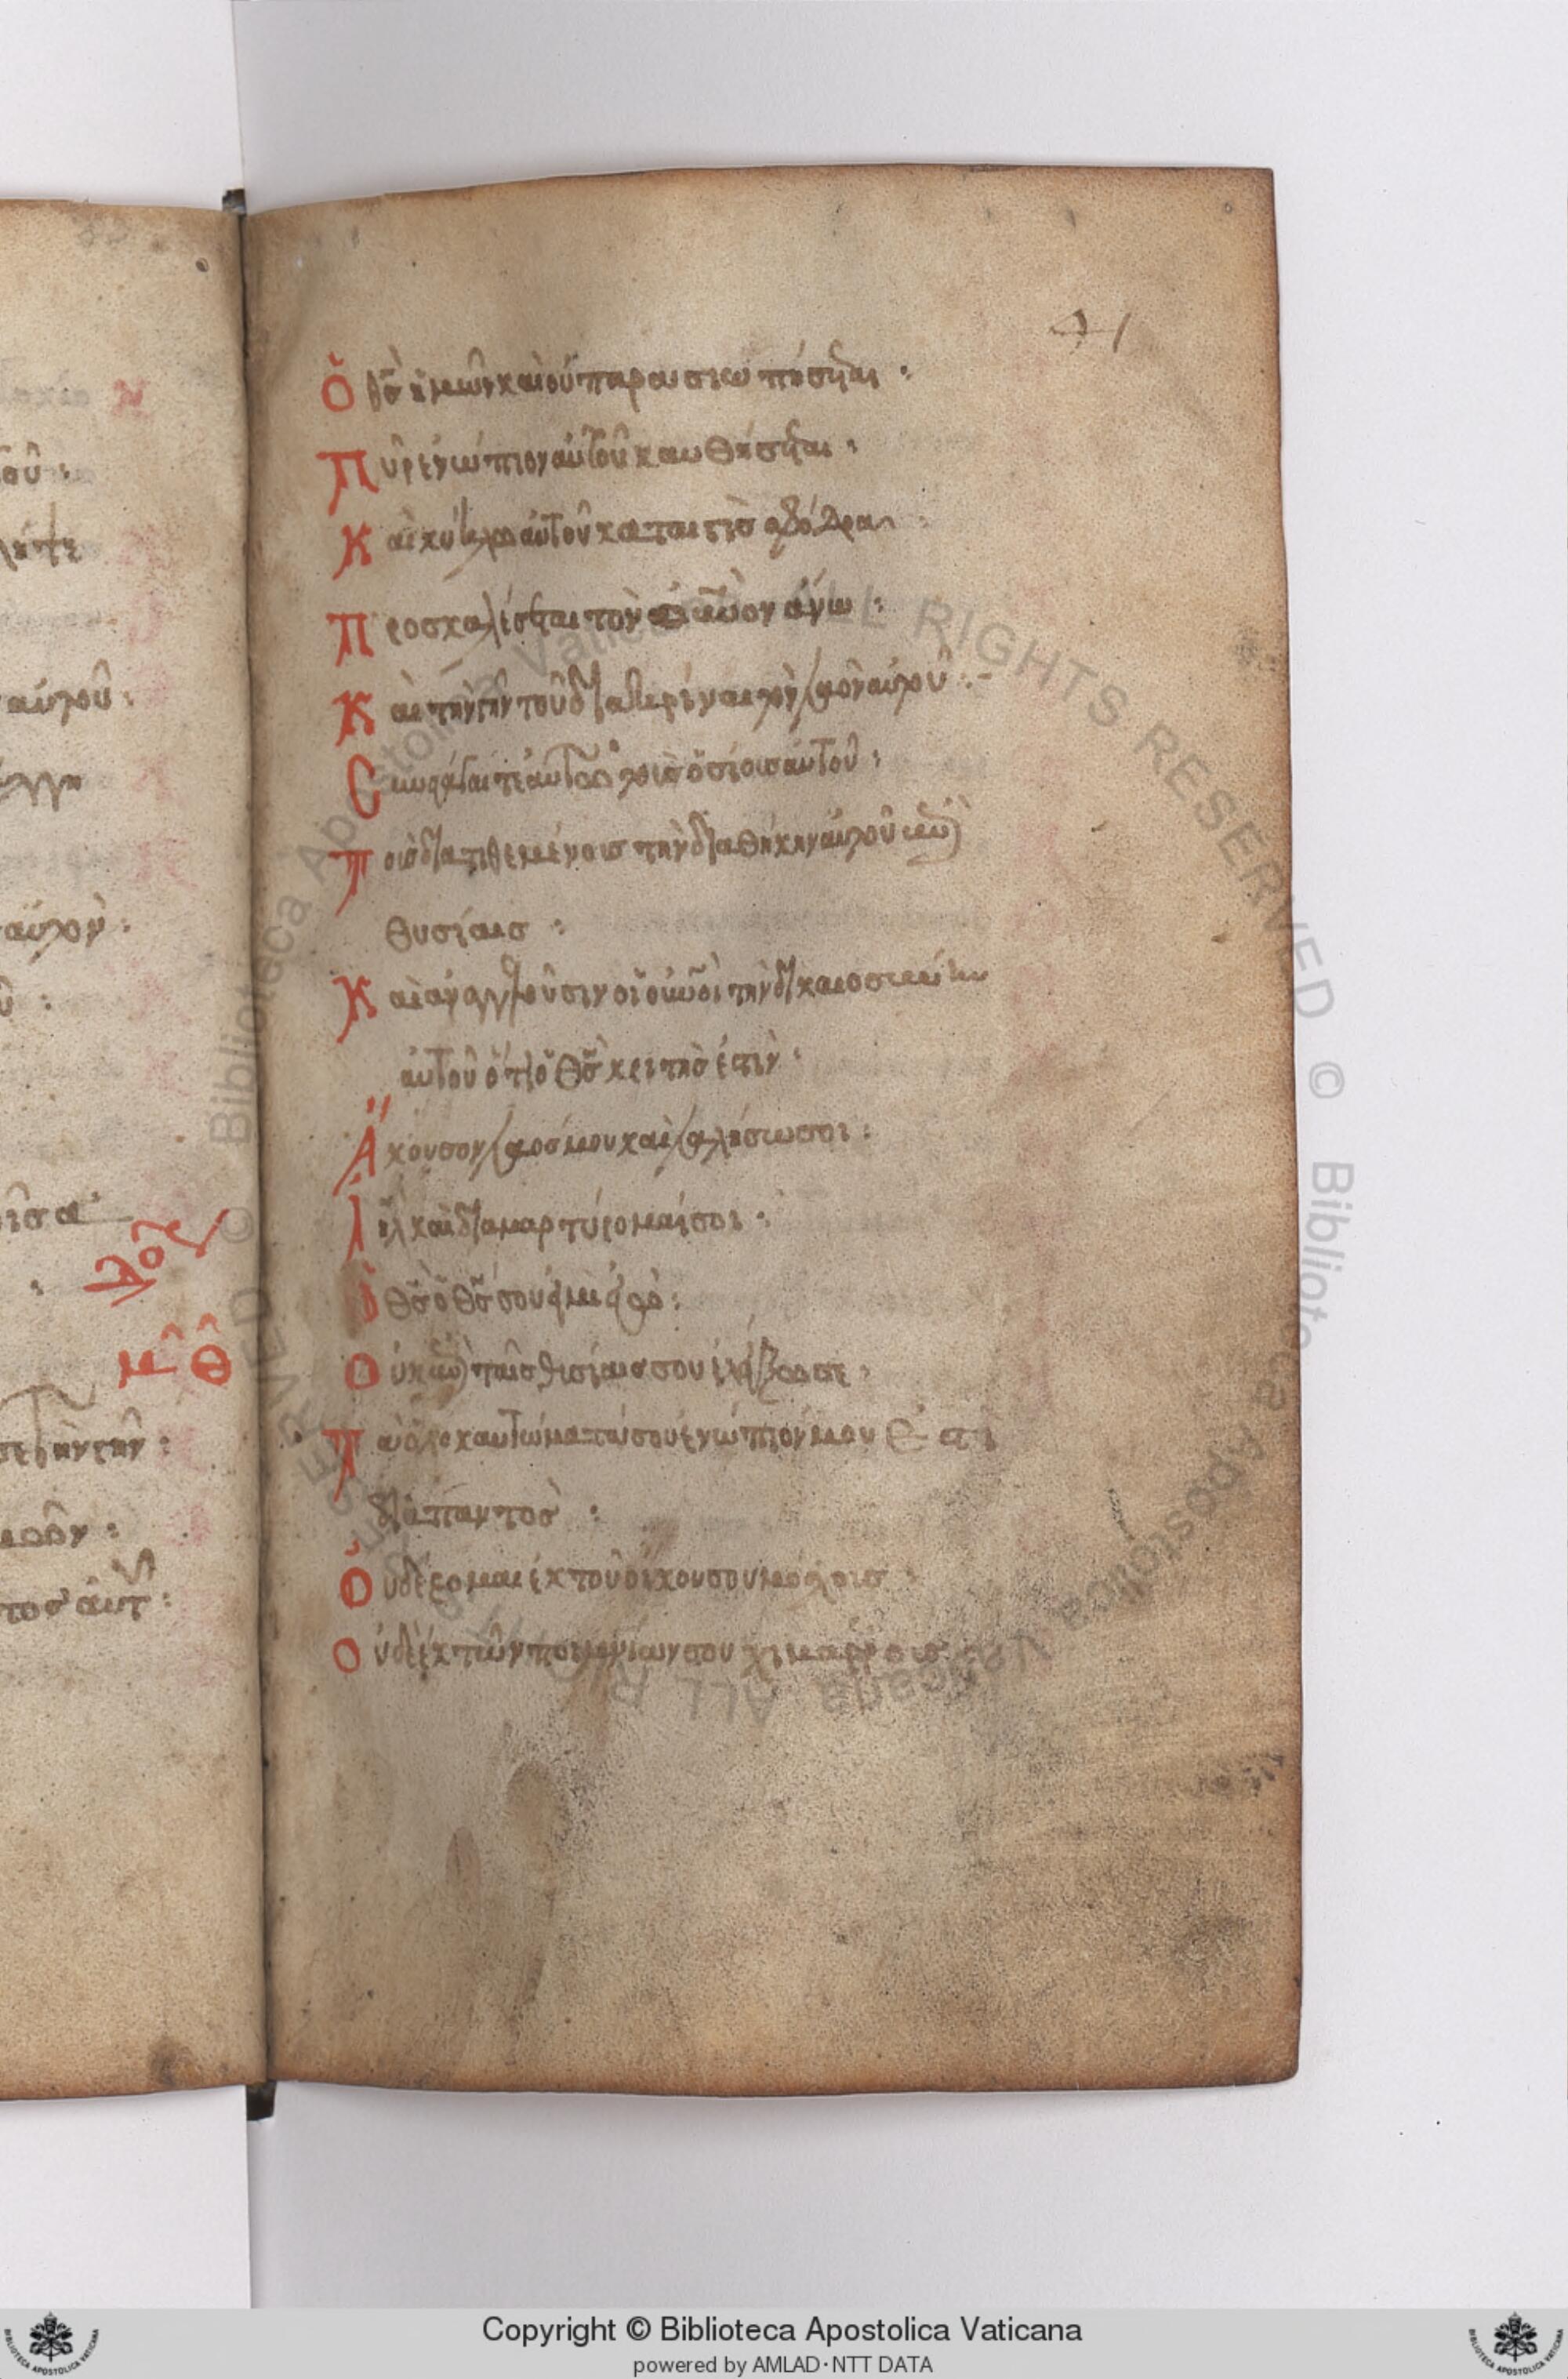 41
Ὁ θς ἡμῶν καὶ οὐ παρασιωπήσεται :
Πῦρ ἐνώπιον αὐτοῦ καυθήσεται :
Καὶ κύκλω αὐτοῦ καταιγὶς σφόδρα :
Προσκαλέσεται τὸν οὐνον ἄνω :
Καὶ τὴν γῆν τοῦ διακρίναι τὸν λαὸν αὐτοῦ :-
Συναγάγετε αὐτῶ τοὺς ὁσίους αὐτοῦ :
Τοὺς διατιθεμένους τὴν διαθήκην αὐτοῦ ἐπὶ
θυσίαις :
Καὶ ἀναγγελοῦσιν οἱ οὐνοὶ τὴν δικαιοσύνην
αὐτοῦ ὅτι ὁ θς κριτὴς ἐστὶν :
Ἄκουσον λαός μου καὶ λαλήσω σοι :
Ιηλ καὶ διαμαρτύρομαί σοι :
Ὁ θς ὁ θς σου εἰμὶ ἐγὼ :
Οὐκ ἐπὶ ταῖς θυσίαις σου ἐλέγξω σε :
Τὰ ὁλοκαυτώματά σου ἐνώπιόν μου ἐστὶ
διαπαντὸς :
Οὐ δέξομαι ἐκ τοῦ οἴκου σου μόσχους :
Οὐδὲ ἐκ τῶν ποιμνίων σου χιμάρους :
αὐτοῦ :
αὐτὸν :
Copyright © Biblioteca Apostolica Vaticana
powered by AMLAD·NTT DATA